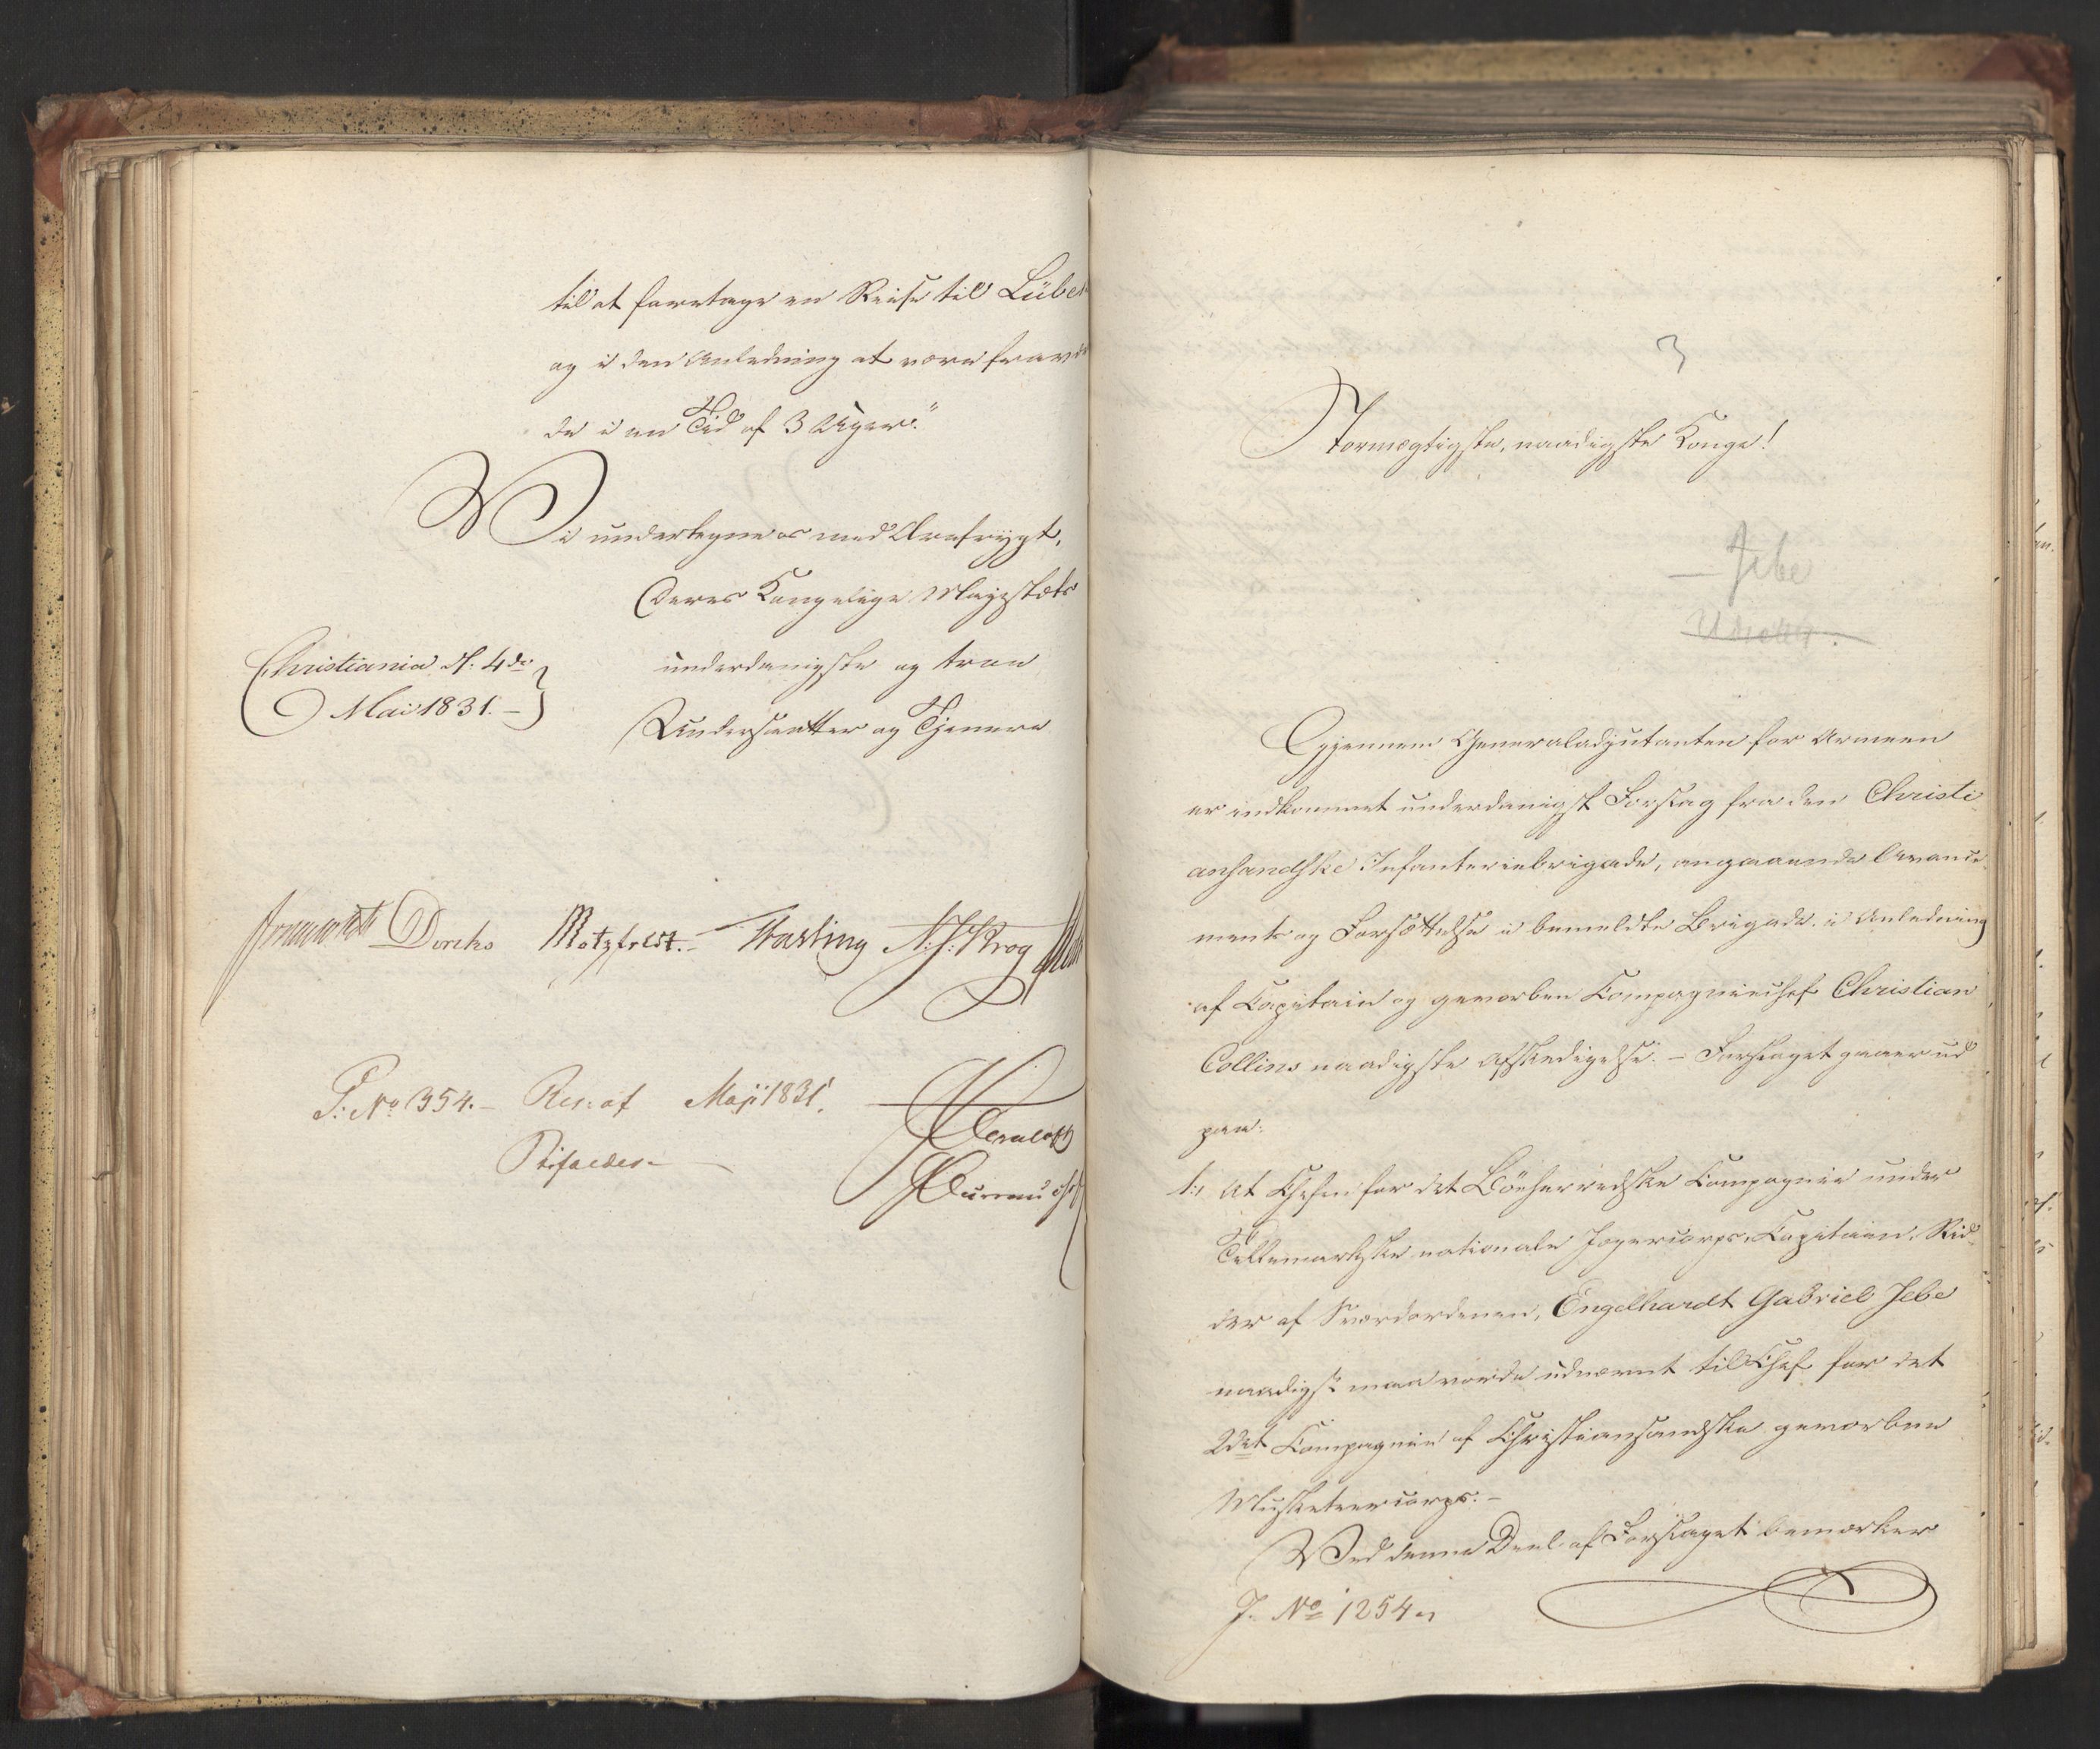 til at foretage en Reise til Lübek
og i den Anledning at være fravæ-
de i en Tid af 3 Uger."
Vi undertegne os med Ærefrygt,
Deres Kongelige Majestæts
underdanigste og troe
Undersaatter og Tjenere
Christiania d. 4de
Mai 1831. –
Diriks Motzfeldt. – Vogt N: J: Krog
P: No 354. – Res: af Maji 1831.
Bifaldes –
3
Stormægtigste, naadigste Konge!
— Jebe
Gjennem Generaladjutanten for Armeen
er indkommet underdanigst Forslag fra den Christi-
ansandske Infanteriebrigade, angaaende Avance-
ments og Forsættelse i bemeldte Brigade i Anledning
af Capitain og geworben Compagniechef Christian
Collins naadigste Afskedigelse. – Forslaget gaaer ud
paa:
1:, At Chefen for det Böeherredske Compagnie under
Tellemarkske nationale Jægercorps, Capitain, Rid-
der af Sværdordenen, Engelhardt Gabriel Jebe
naadigst maa vorde udnævnt til Chef for det
2det Compagnie af Christiansandske geworbne
Musketeercorps. –
Ved denne Deel af Forslaget bemærker
J. No 1254